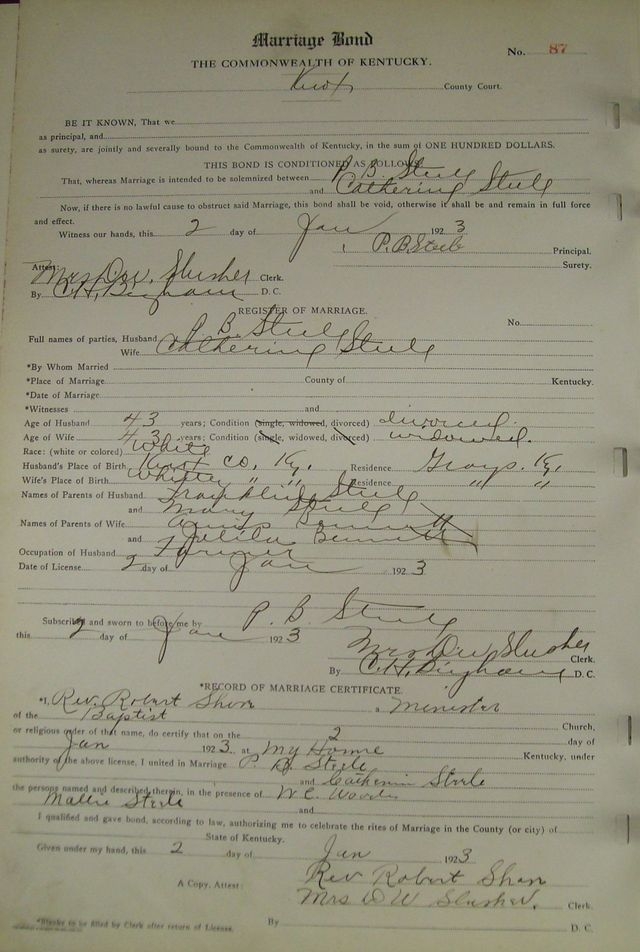 Marriage Bond
No. 87
THE COMMONWEALTH OF KENTUCKY.
Knox County Court.
BE IT KNOWN, That we
as principal, and
as surety, are jointly and severally bound to the Commonwealth of Kentucky, in the sum of ONE HUNDRED DOLLARS.
THIS BOND IS CONDITIONED AS FOLLOWS:
That, whereas Marriage is intended to be solemnized between P. B. Steele
and Catherine Steele
Now, if there is no lawful cause to obstruct said Marriage, this bond shall be void, otherwise it shall be and remain in full force
and effect.
Witness our hands, this 2 day of Jan 1923
P. B. Steele Principal.
Surety.
Attest:
Mrs D. W. Slusher Clerk.
By C. H. Bingham D. C.
REGISTER OF MARRIAGE.
No.
Full names of parties, Husband P. B. Steele
Wife Catherine Steele
*By Whom Married
*Place of Marriage County of Kentucky.
*Date of Marriage
*Witnesses and
Age of Husband 43 years; Condition (single, widowed, divorced) divorced.
Age of Wife 43 years; Condition (single, widowed, divorced) widowed.
Race: (white or colored) White
Husband's Place of Birth Knox Co, Ky. Residence Grays. Ky,
Wife's Place of Birth Whitley " " Residence " "
Names of Parents of Husband Franklin Steele
and Mary Steele
Names of Parents of Wife Bennett
and Bennett
Occupation of Husband Farmer
Date of License 2 day of Jan 1923
Subscribed and sworn to before me by P. B. Steele
this 2 day of Jan 1923
Mrs D W Slusher Clerk.
By C. H. Bingham D. C.
*RECORD OF MARRIAGE CERTIFICATE.
*I, Rev. Robert Shan a Minister
of the Baptist Church,
or religious order of that name, do certify that on the 2 day of
Jan 1923, at My Home Kentucky, under
authority of the above license, I united in Marriage P. B. Steele
and Catherin Steele
the persons named and described therein, in the presence of W. C. Woods
Mallie Steele and
I qualified and gave bond, according to law, authorizing me to celebrate the rites of Marriage in the County (or city) of
State of Kentucky.
Given under my hand, this 2 day of Jan 1923
Rev Robert Shan
A Copy, Attest: Mrs D W Slusher. Clerk.
*Blanks to be filled by Clerk after return of License. By D. C.